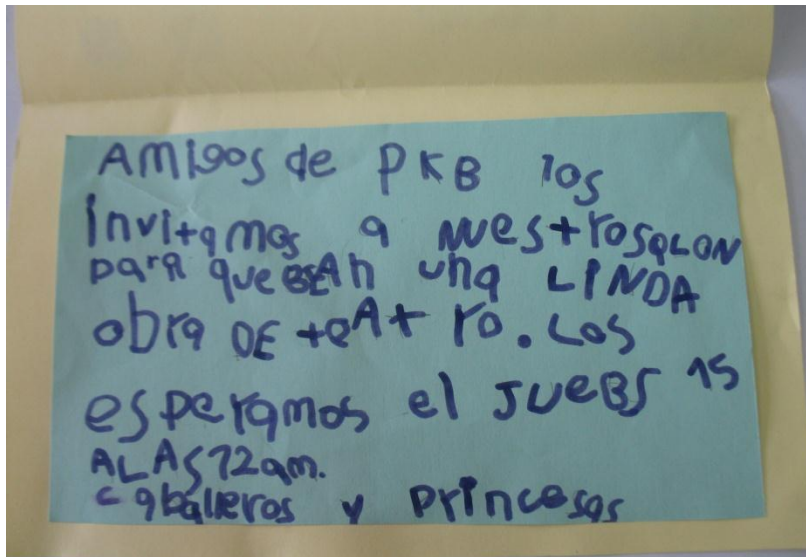 AMigos de PKB los
invitamos a NUestrosaLON
para queBEAn una LINDA
obra DE teAtro. Los
esperamos el JUeBS 15
ALAS 12 am.
caballeros y princesas